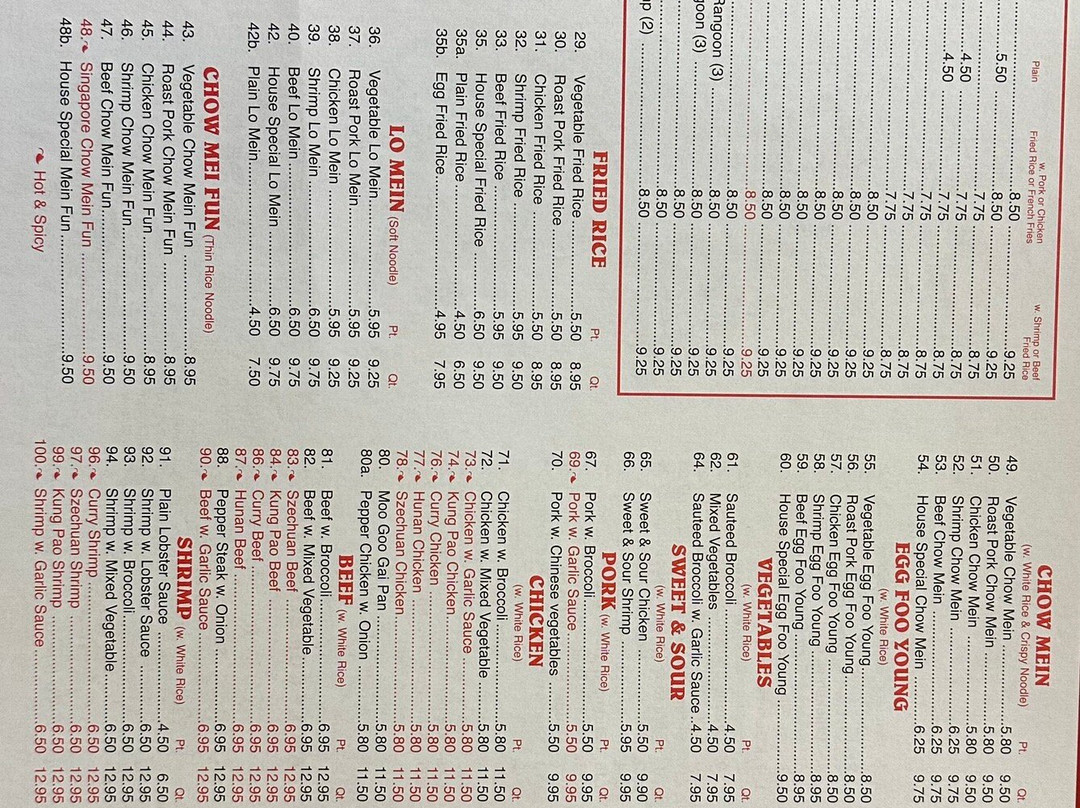 Plain w. Pork or Chicken Fried Rice or French Fries w. Shrimp or Beef Fried Rice
8.50 9.25
5.50 8.50 9.25
7.75 8.75
4.50 7.75 8.75
4.50 7.75 8.75
7.75 8.75
7.75 8.75
7.75 8.75
8.50 9.25
8.50 9.25
8.50 9.25
8.50 9.25
8.50 9.25
8.50 9.25
8.50 9.25
8.50 9.25
8.50 9.25
Rangoon (3) 8.50 9.25
goon (3) 8.50 9.25
8.50 9.25
8.50 9.25
p (2) 8.50 9.25
FRIED RICE Pt. Qt.
29. Vegetable Fried Rice 5.50 8.95
30. Roast Pork Fried Rice 5.50 8.95
31. Chicken Fried Rice 5.50 8.95
32. Shrimp Fried Rice 5.95 9.50
33. Beef Fried Rice 5.95 9.50
35. House Special Fried Rice 6.50 9.50
35a. Plain Fried Rice 4.50 6.50
35b. Egg Fried Rice 4.95 7.95
LO MEIN (Soft Noodle) Pt. Qt.
36. Vegetable Lo Mein 5.95 9.25
37. Roast Pork Lo Mein 5.95 9.25
38. Chicken Lo Mein 5.95 9.25
39. Shrimp Lo Mein 6.50 9.75
40. Beef Lo Mein 6.50 9.75
42. House Special Lo Mein 6.50 9.75
42b. Plain Lo Mein 4.50 7.50
CHOW MEI FUN (Thin Rice Noodle)
43. Vegetable Chow Mein Fun 8.95
44. Roast Pork Chow Mein Fun 8.95
45. Chicken Chow Mein Fun 8.95
46. Shrimp Chow Mein Fun 9.50
47. Beef Chow Mein Fun 9.50
48. Singapore Chow Mein Fun 9.50
48b. House Special Mein Fun 9.50
Hot & Spicy
CHOW MEIN
(w. White Rice & Crispy Noodle) Pt. Qt.
49. Vegetable Chow Mein 5.80 9.50
50. Roast Pork Chow Mein 5.80 9.50
51. Chicken Chow Mein 5.80 9.50
52. Shrimp Chow Mein 6.25 9.75
53. Beef Chow Mein 6.25 9.75
54. House Special Chow Mein 6.25 9.75
EGG FOO YOUNG
(w. White Rice)
55. Vegetable Egg Foo Young 8.50
56. Roast Pork Egg Foo Young 8.50
57. Chicken Egg Foo Young 8.50
58. Shrimp Egg Foo Young 8.95
59. Beef Egg Foo Young 8.95
60. House Special Egg Foo Young 9.50
VEGETABLES
(w. White Rice) Pt. Qt.
61. Sauteed Broccoli 4.50 7.95
62. Mixed Vegetables 4.50 7.95
64. Sauteed Broccoli w. Garlic Sauce 4.50 7.95
SWEET & SOUR
(w. White Rice) Pt. Qt.
65. Sweet & Sour Chicken 5.50 9.90
66. Sweet & Sour Shrimp 5.95 9.95
PORK (w. White Rice) Pt. Qt.
67. Pork w. Broccoli 5.50 9.95
69. Pork w. Garlic Sauce 5.50 9.95
70. Pork w. Chinese vegetables 5.50 9.95
CHICKEN
(w. White Rice) Pt. Qt.
71. Chicken w. Broccoli 5.80 11.50
72. Chicken w. Mixed Vegetable 5.80 11.50
73. Chicken w. Garlic Sauce 5.80 11.50
74. Kung Pao Chicken 5.80 11.50
76. Curry Chicken 5.80 11.50
77. Hunan Chicken 5.80 11.50
78. Szechuan Chicken 5.80 11.50
80. Moo Goo Gai Pan 5.80 11.50
80a. Pepper Chicken w. Onion 5.80 11.50
BEEF (w. White Rice) Pt. Qt.
81. Beef w. Broccoli 6.95 12.95
82. Beef w. Mixed Vegetable 6.95 12.95
83. Szechuan Beef 6.95 12.95
84. Kung Pao Beef 6.95 12.95
86. Curry Beef 6.95 12.95
87. Hunan Beef 6.95 12.95
88. Pepper Steak w. Onion 6.95 12.95
90. Beef w. Garlic Sauce 6.95 12.95
SHRIMP (w. White Rice) Pt. Qt.
91. Plain Lobster Sauce 4.50 6.50
92. Shrimp w. Lobster Sauce 6.50 12.95
93. Shrimp w. Broccoli 6.50 12.95
94. Shrimp w. Mixed Vegetable 6.50 12.95
96. Curry Shrimp 6.50 12.95
97. Szechuan Shrimp 6.50 12.95
99. Kung Pao Shrimp 6.50 12.95
100. Shrimp w. Garlic Sauce 6.50 12.95